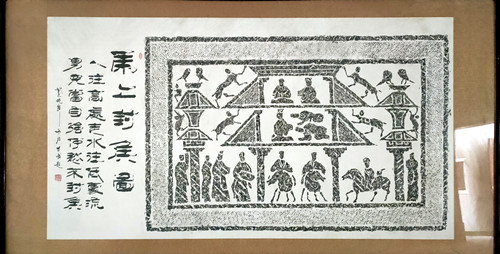 馬上封侯圖
人往高處走水往低處流
男兒當自強何愁不封侯